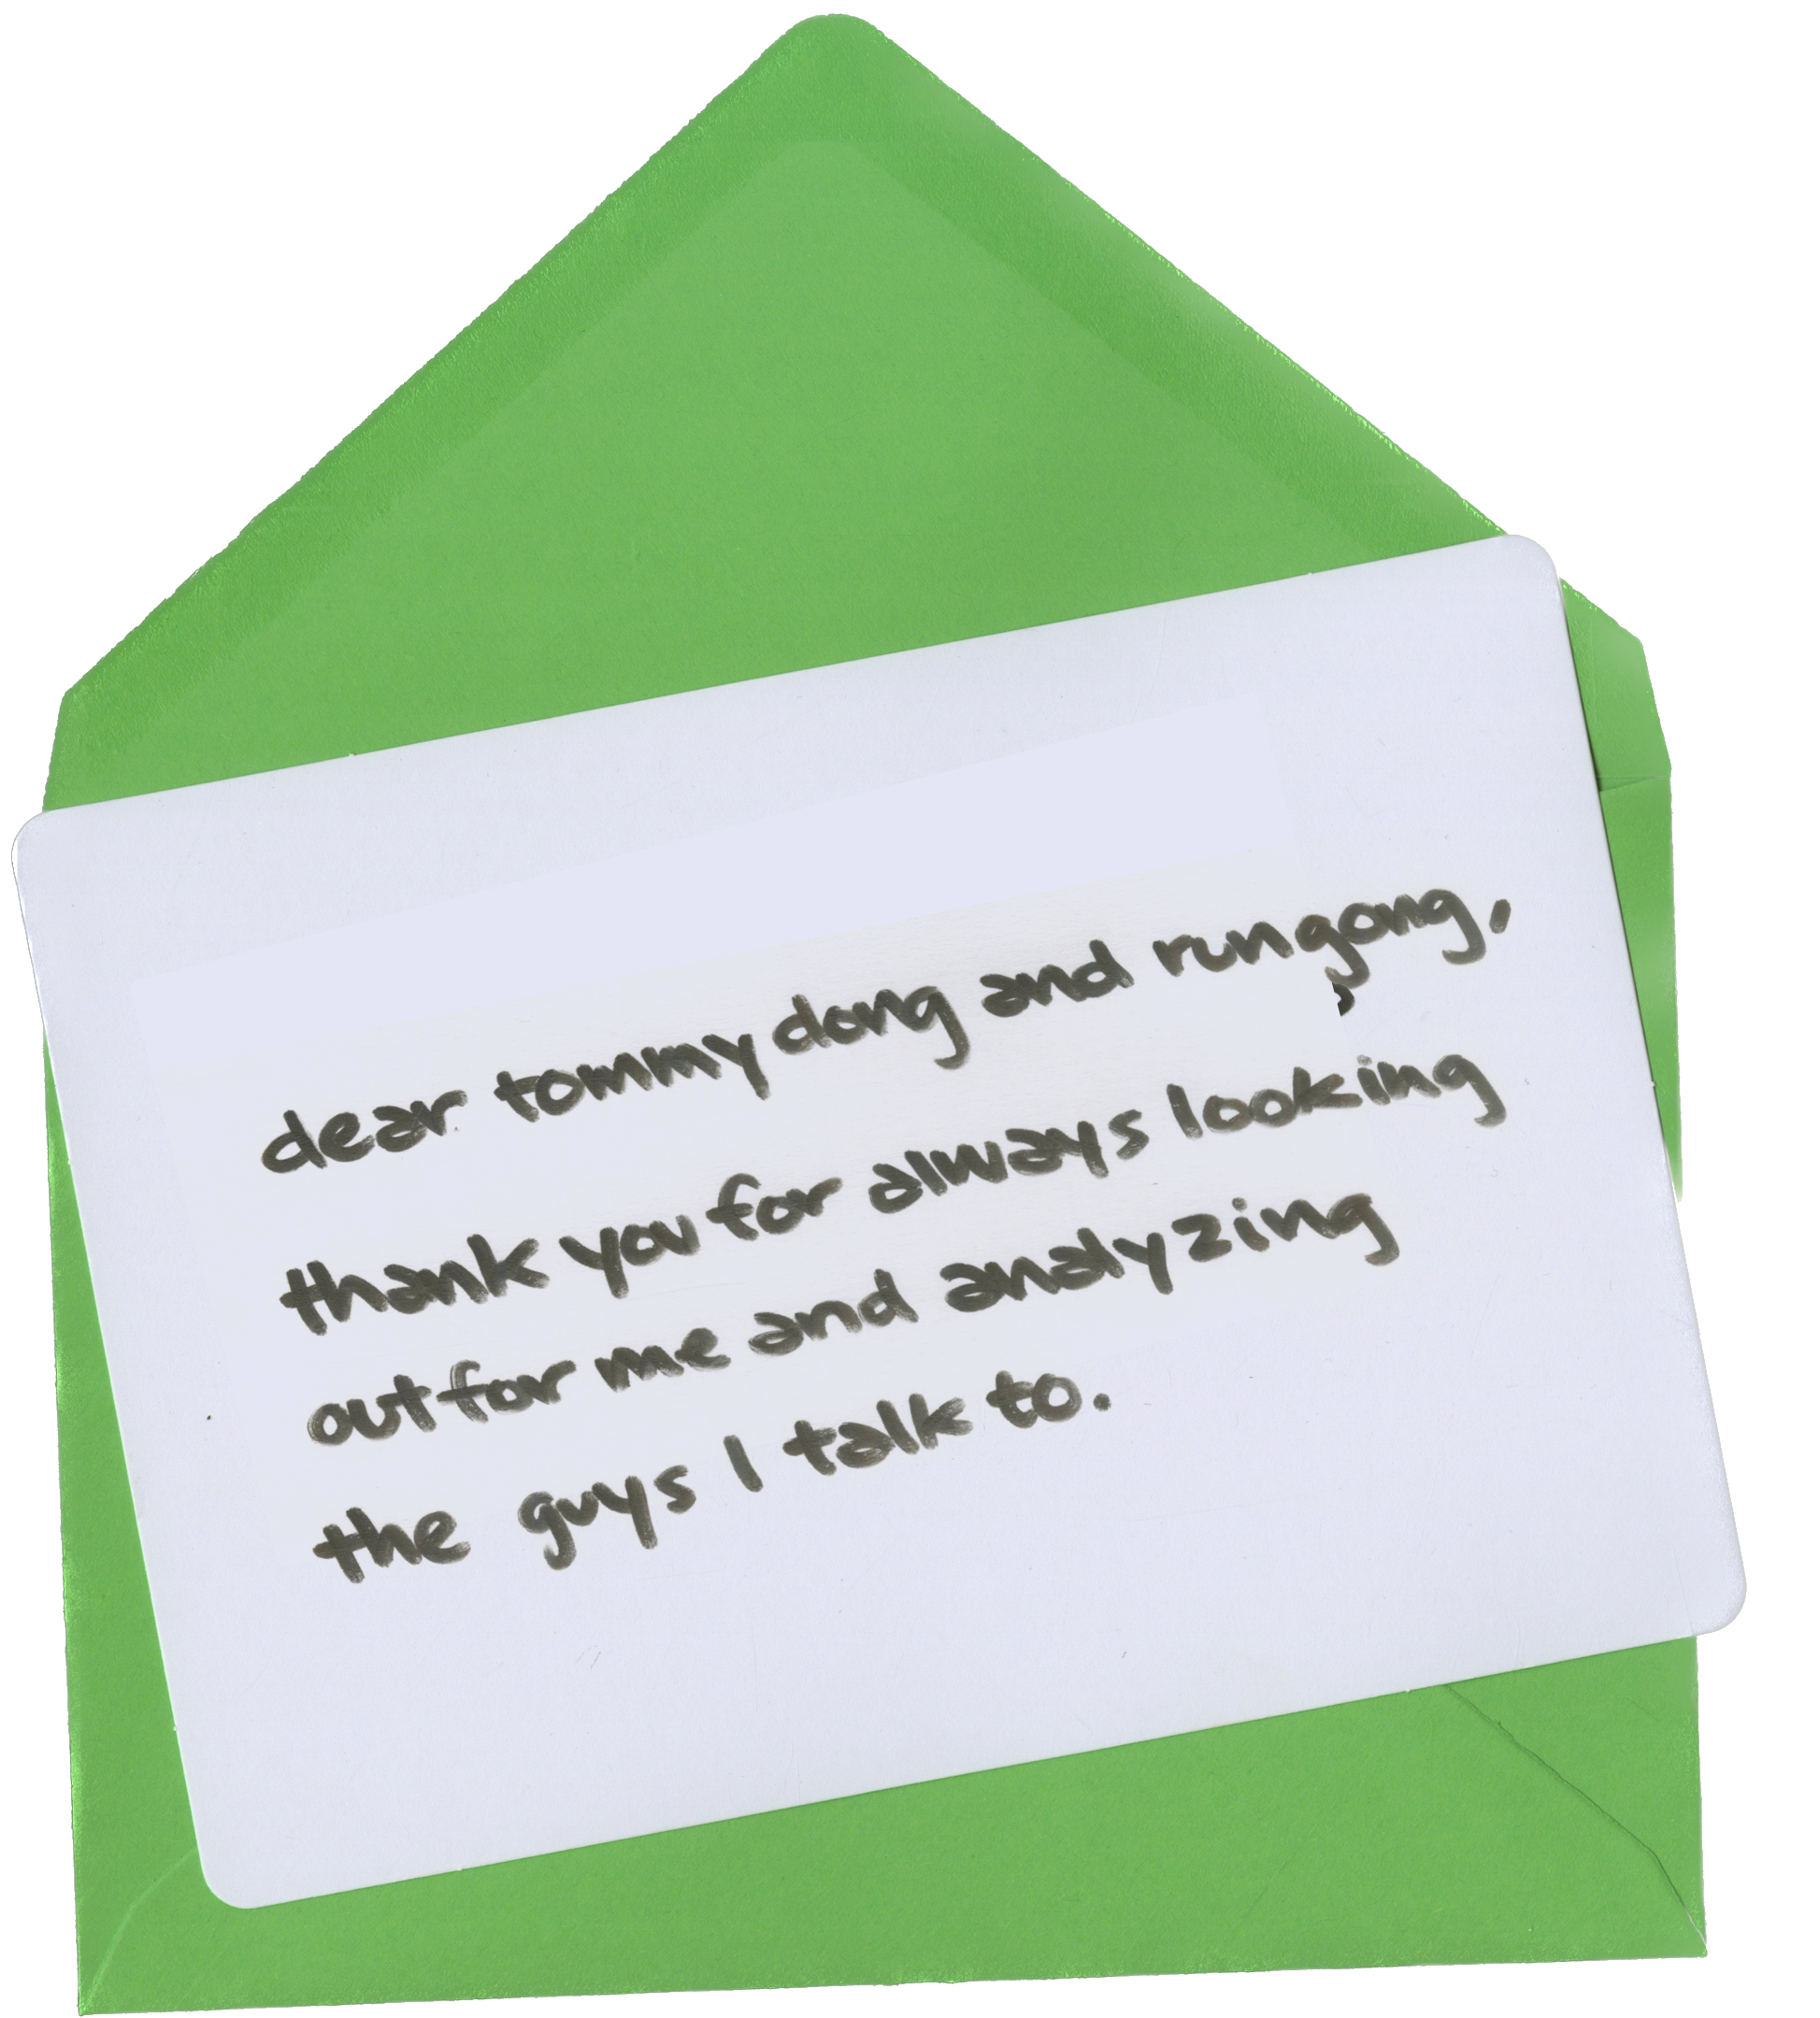 dear tommy dong and rungong,
thank you for always looking
out for me and analyzing
the guys I talk to.